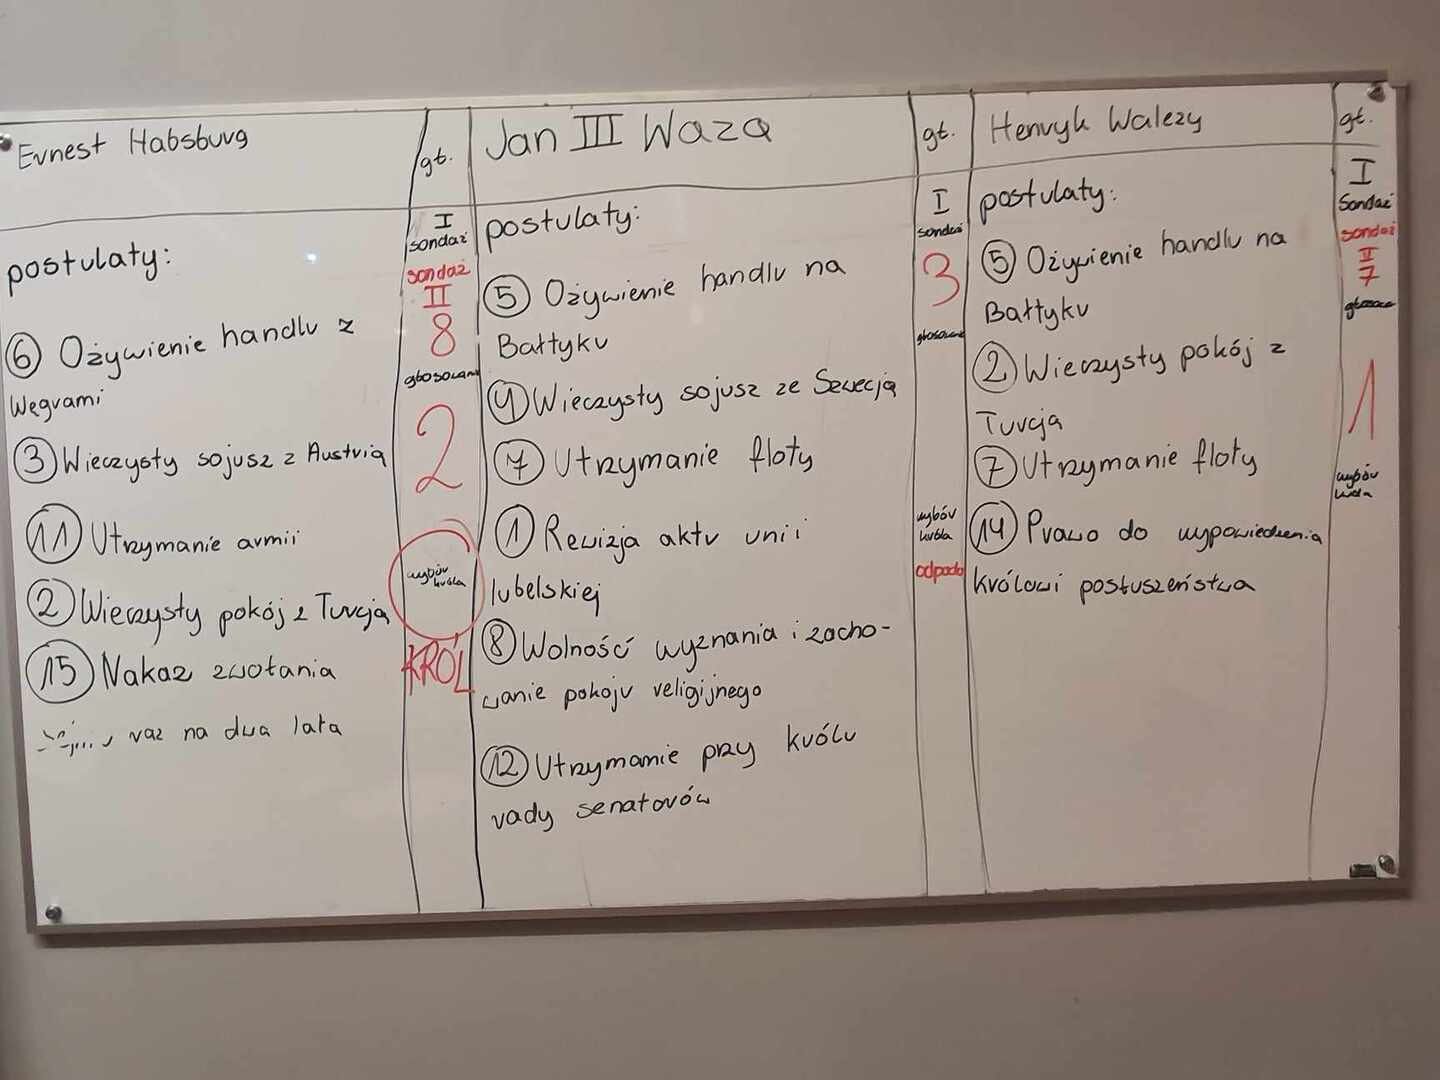 Ernest Habsburg
gł.
postulaty:
I
sondaż
sondaż
II
8
głosowanie
2
wybór
króla
KRÓL
6 Ożywienie handlu z
Węgrami
3 Wieczysty sojusz z Austrią
11 Utrzymanie armii
2 Wieczysty pokój z Turcją
15 Nakaz zwołania
raz na dwa lata
Jan III Waza
gł.
postulaty:
5 Ożywienie handlu na
Bałtyku
4 Wieczysty sojusz ze Szwecją
7 Utrzymanie floty
1 Rewizja aktu unii
lubelskiej
8 Wolność wyznania i zacho-
wanie pokoju religijnego
12 Utrzymanie przy królu
rady senatorów
I
sondaż
3
głosowanie
wybór
króla
odpada
Henryk Walezy
gł.
postulaty:
5 Ożywienie handlu na
Bałtyku
2 Wieczysty pokój z
Turcją
7 Utrzymanie floty
14 Prawo do wypowiedzenia
królowi postuszeństwa
I
Sondaż
sondaż
II
7
1
wybór
króla